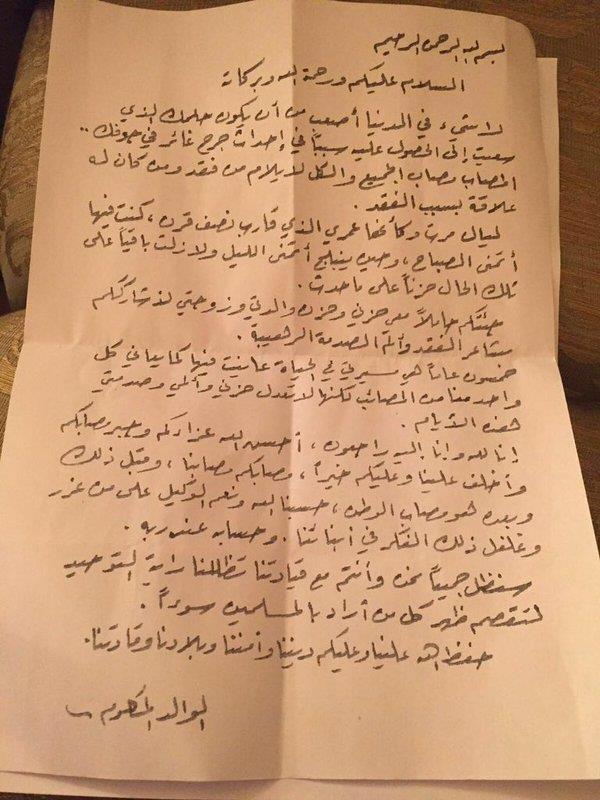 بسم الله الرحمن الرحيم
السلام عليكم ورحمة الله وبركاته
لا شيء في الدنيا أصعب من أن يكون حلمك الذي
سعيت إلى الحصول عليه سبباً في إحداث جرح غائر في جوفك ..
المصاب مصاب الجميع والكل لا يلام من فقد ومن كان له
علاقة بسبب الفقد .
ليال مرت وكأنها عمري الذي قارب نصف قرن ، كنت فيها
أتمنى الصباح ، وحين ينبلج أتمنى الليل ولا زلت باقياً على
تلك الحال حزناً على ما حدث .
جئتكم حاملاً معي حزني وحزن والدتي وزوجتي لنشارككم
مشاعر الفقد وألم الصدمة الرهيبة .
خمسون عاماً هي مسيرتي في الحياة عانيت فيها كما يعاني كل
واحد منا من المصائب لكنها لا تعدل حزني وألمي وصدمتي
هذه الأيام .
إنا لله وإنا إليه راجعون ، أحسن الله عزاءكم وجبر مصابكم
وأخلف علينا وعليكم خيراً ، مصابكم مصابنا ، وقبل ذلك
وبعده هو مصاب الوطن ، حسبنا الله ونعم الوكيل على من غرر
وغلغل ذلك الفكر في أبنائنا . وحسابه عند ربه .
سنظل جميعاً نحن وأنتم مع قيادتنا تظللنا راية التوحيد
لنقصم ظهر كل من أراد بالمسلمين سوءاً .
حفظ الله علينا وعليكم ديننا وأمننا وبلادنا وقادتنا .
الوالد المكلوم